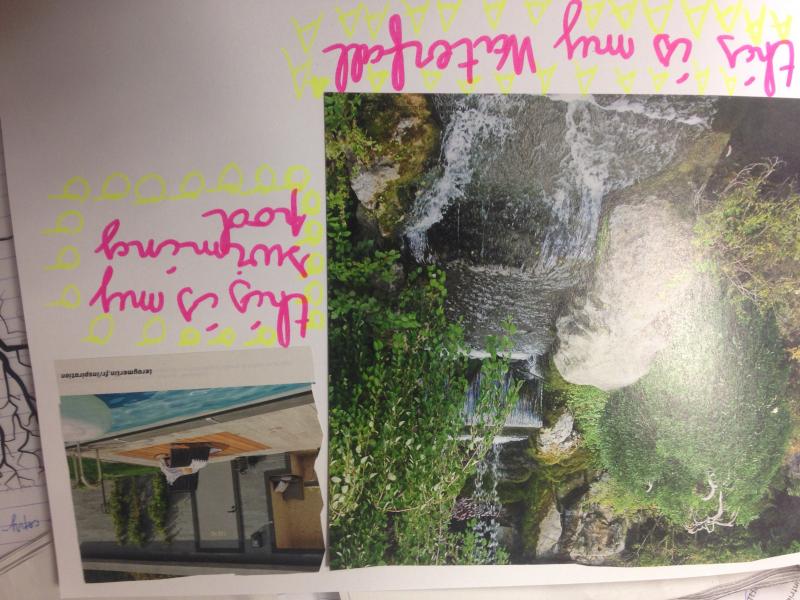 leroymerlin.fr/inspiration
this is my
swiming
pool
this is my Waterfall